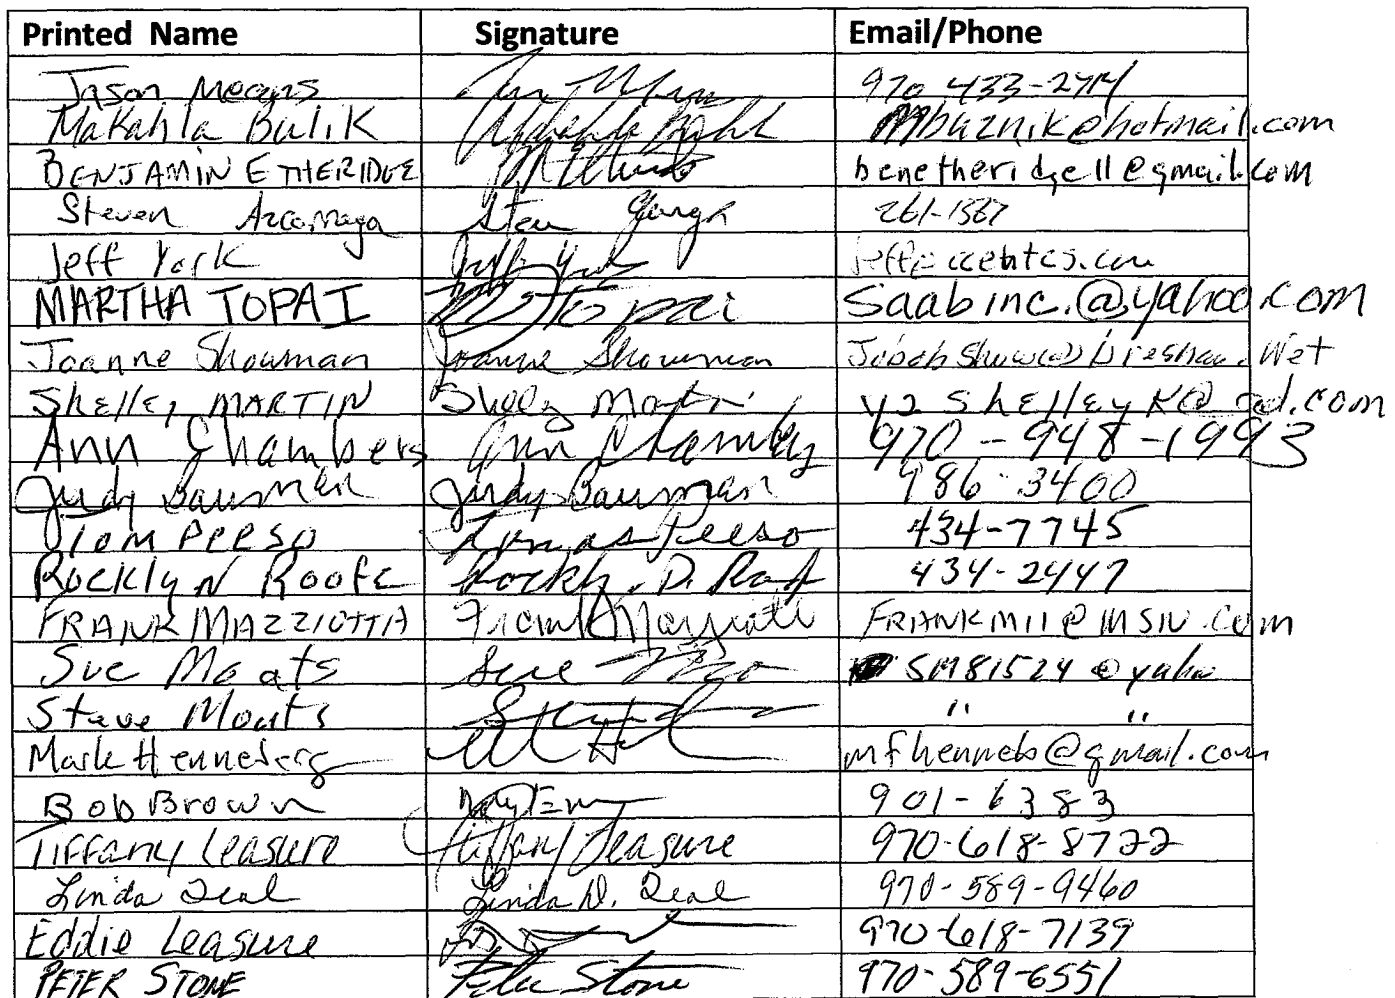 Printed Name Signature Email/Phone
Jason Means 970 433-2714
Makahla Bulik Makahla Bulik mbuznik@hotmail.com
BENJAMIN ETHERIDGE benetheridge11@gmail.com
Steven 261-1567
Jeff York Jeff York
MARTHA TOPAI M Topai Saabinc.@yahoo.com
Joanne Showman Joanne Showman
Shelley MARTIN Shelley Martin y2shelleyk@aol.com
Ann Chambers Ann Chambers 970-948-1993
Judy Bauman Judy Bauman 986-3400
Tom Peeso Tomas Peeso 434-7745
Rocklyn Roofe 434-2447
FRANK MAZZIOTTA Frank Mazziotta FRANKM11@MSN.COM
Sue Moats Sue SM81524@yahoo
Steve Moats " "
Mark Henneberg mfhenneb@gmail.com
Bob Brown 901-6383
Tiffany Leasure Tiffany Leasure 970-618-8722
Linda Deal Linda D. Deal 970-589-9460
Eddie Leasure 970-618-7139
PETER STONE Peter Stone 970-589-6551